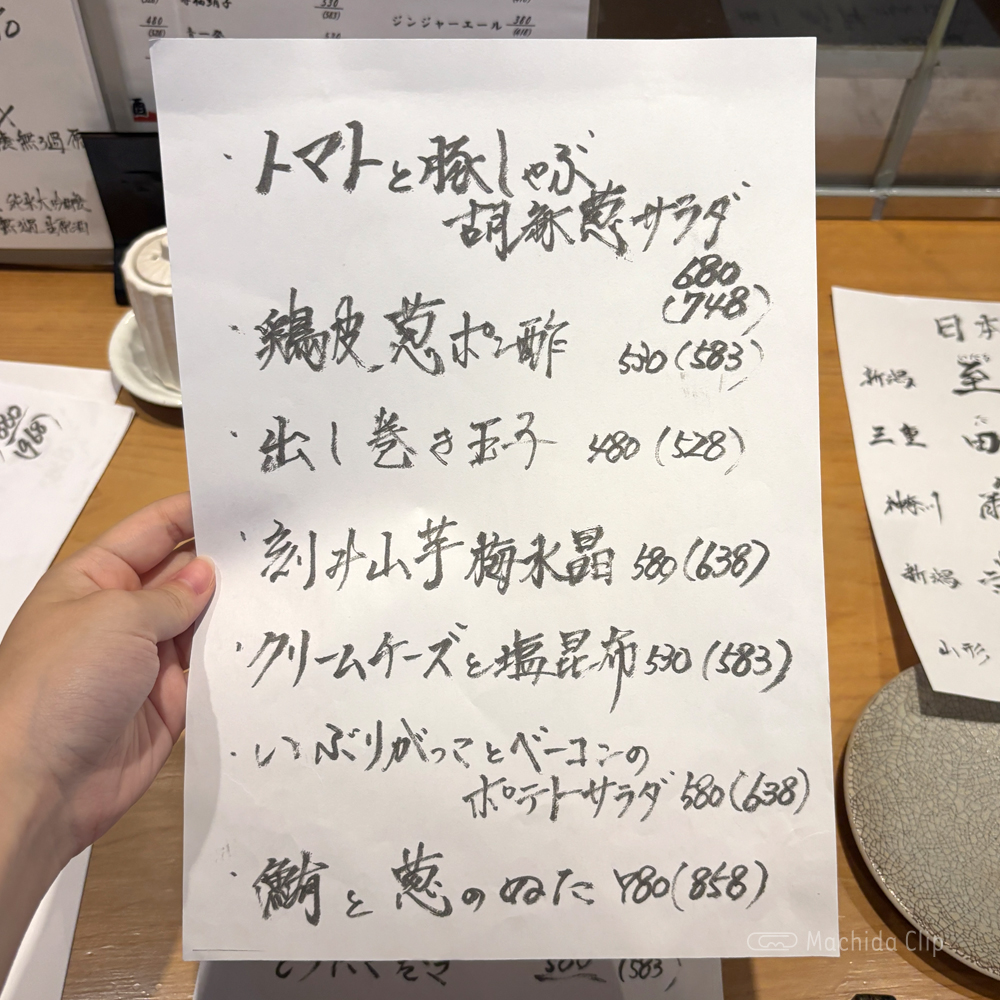 ジンジャーエール 380
(418)
480
(528)
530
(583)
・トマトと豚しゃぶ
胡麻葱サラダ
680
(748)
・鶏皮葱ポン酢 530(583)
・出し巻き玉子 480(528)
・刻み山芋梅水晶 580(638)
・クリームチーズと塩昆布 530(583)
・いぶりがっことベーコンの
ポテトサラダ 580(638)
・鮪と葱のぬた 780(858)
新潟
三重
神奈川
新潟
山形
Machida Clip
(583)